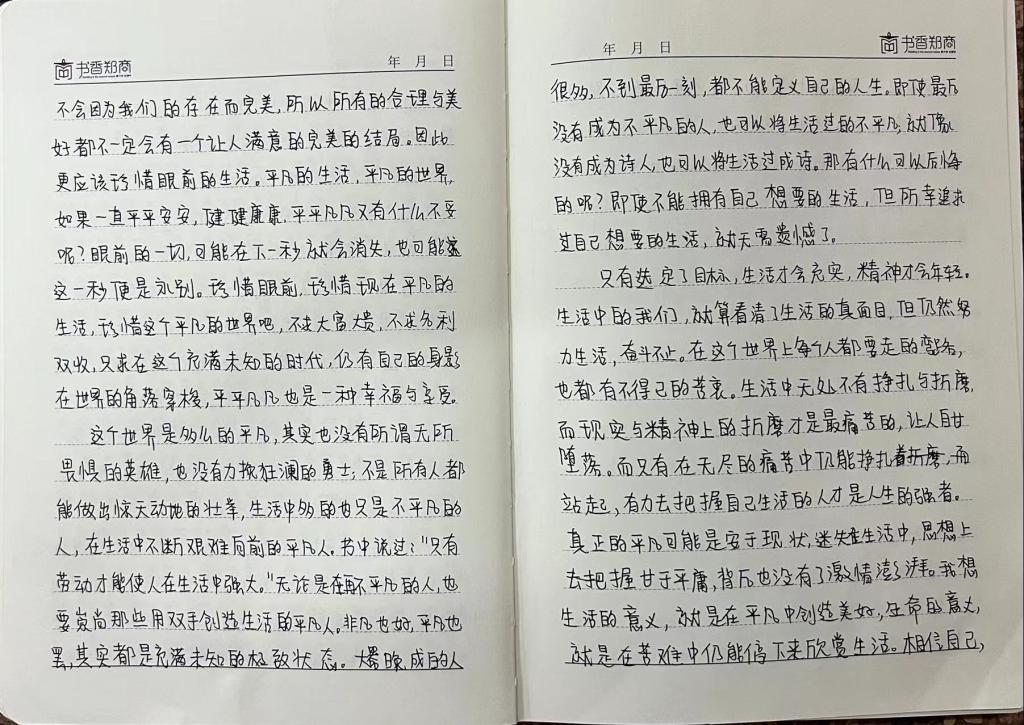 书香郑商
年 月 日
不会因为我们的存在而完美,所以所有的合理与美
好都不一定会有一个让人满意的完美的结局。因此
更应该珍惜眼前的生活。平凡的生活,平凡的世界,
如果一直平平安安,健健康康,平平凡凡又有什么不妥
呢?眼前的一切,可能在下一秒就会消失,也可能
这一秒便是永别。珍惜眼前,珍惜现在平凡的
生活,珍惜这个平凡的世界吧,不求大富大贵,不求名利
双收,只求在这个充满未知的时代,仍有自己的身影
在世界的角落穿梭,平平凡凡也是一种幸福与享受。
这个世界是多么的平凡,其实也没有所谓无所
畏惧的英雄,也没有力挽狂澜的勇士,不是所有人都
能做出惊天动地的壮举,生活中多的也只是不平凡的
人,在生活中不断艰难向前的平凡人。书中说过:"只有
劳动才能使人在生活中强大。"无论是在再不平凡的人,也
要崇尚那些用双手创造生活的平凡人。非凡也好,平凡也
罢,其实都是充满未知的极致状态。大器晚成的人
年 月 日
书香郑商
很多,不到最后一刻,都不能定义自己的人生。即使最后
没有成为不平凡的人,也可以将生活过的不平凡,就像
没有成为诗人,也可以将生活过成诗。那有什么可以后悔
的呢?即使不能拥有自己想要的生活,但所幸追求
过自己想要的生活,就无需遗憾了。
只有选定了目标,生活才会充实,精神才会年轻。
生活中的我们,就算看清了生活的真面目,但仍然努
力生活,奋斗不止。在这个世界上每个人都要走的弯路,
也都有不得已的苦衷。生活中无处不有挣扎与折磨,
而现实与精神上的折磨才是最痛苦的,让人自甘
堕落。而只有在无尽的痛苦中仍能挣扎着折磨,而
站起,有力去把握自己生活的人才是人生的强者。
真正的平凡可能是安于现状,迷失在生活中,思想上
去把握甘于平庸,背后也没有了激情澎湃。我想
生活的意义,就是在平凡中创造美好,生命的意义,
就是在苦难中仍能停下来欣赏生活。相信自己,